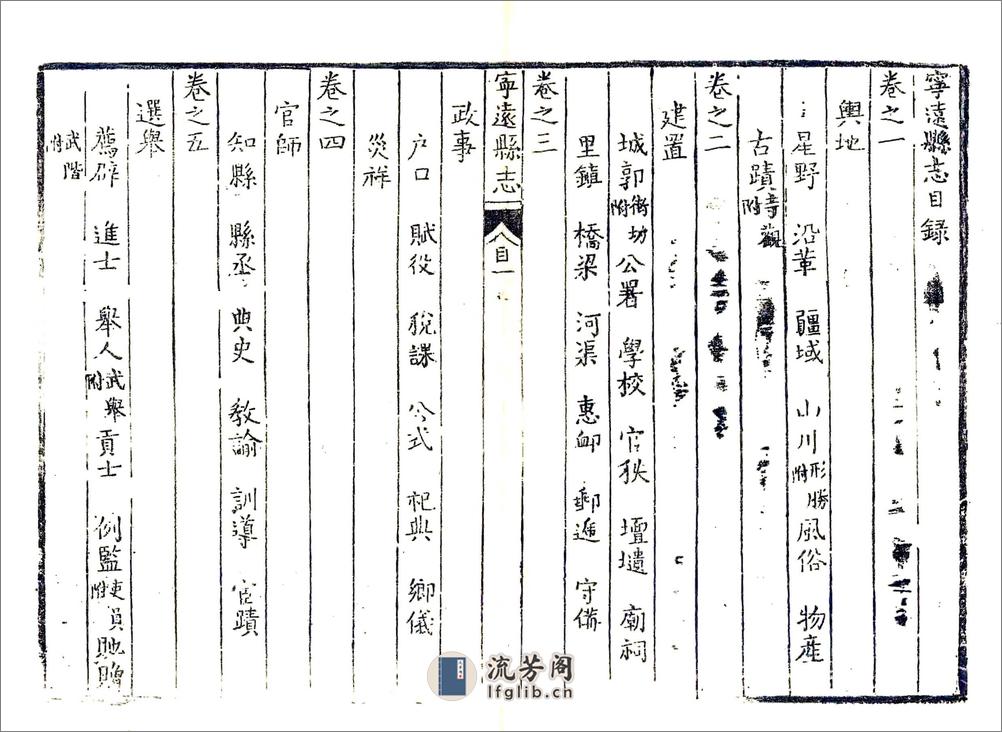 寧遠縣志目錄
卷之一
輿地
星野 沿革 疆域 山川形勝附 風俗 物產
古蹟寺觀附
卷之二
建置
城郭街坊附 公署 學校 官秩 壇壝 廟祠
里鎮 橋梁 河渠 惠卹 郵遞 守備
卷之三
寧遠縣志 目一
政事
户口 賦役 稅課 令式 祀典 鄉儀
災祥
卷之四
官師
知縣 縣丞 典史 教諭 訓導 宦蹟
卷之五
選舉
薦辟 進士 舉人武舉附 貢士 例監吏員附 貤贈
武階附
流芳阁
lfglib.cn